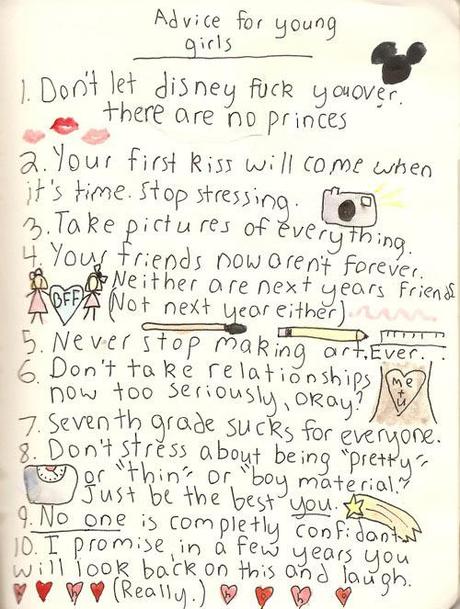 Advice for young
girls
1. Don't let disney fuck you over.
there are no princes
2. Your first kiss will come when
it's time. Stop stressing.
3. Take pictures of everything.
4. Your friends now aren't forever.
BFF
Neither are next years friends
(Not next year either)
5. Never stop making art. Ever...
6. Don't take relationships
now too seriously, okay?
me
+
u
7. Seventh grade sucks for everyone.
8. Don't stress about being "pretty"
or "thin" or "boy material."
Just be the best you.
9. No one is completly confidant
10. I promise, in a few years you
will look back on this and laugh.
(Really.)